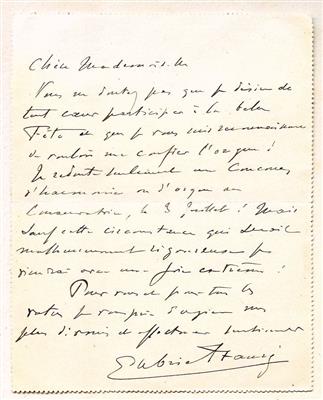 Chère Mademoiselle
Vous ne doutez pas que je désire de
tout cœur participer à la belle
Fête et que je vous suis reconnaissant
de vouloir me confier l'orgue !
Je redoute seulement un Concours
d'harmonie ou d'orgue au
Conservatoire, le 3 Juillet ! Mais
sauf cette circonstance qui serait
malheureusement rigoureuse je
viendrai avec une joie extrême !
Pour vous et pour tous les
vôtres je vous prie d'agréer mes
plus dévoués et affectueux sentiments
Gabriel Fauré